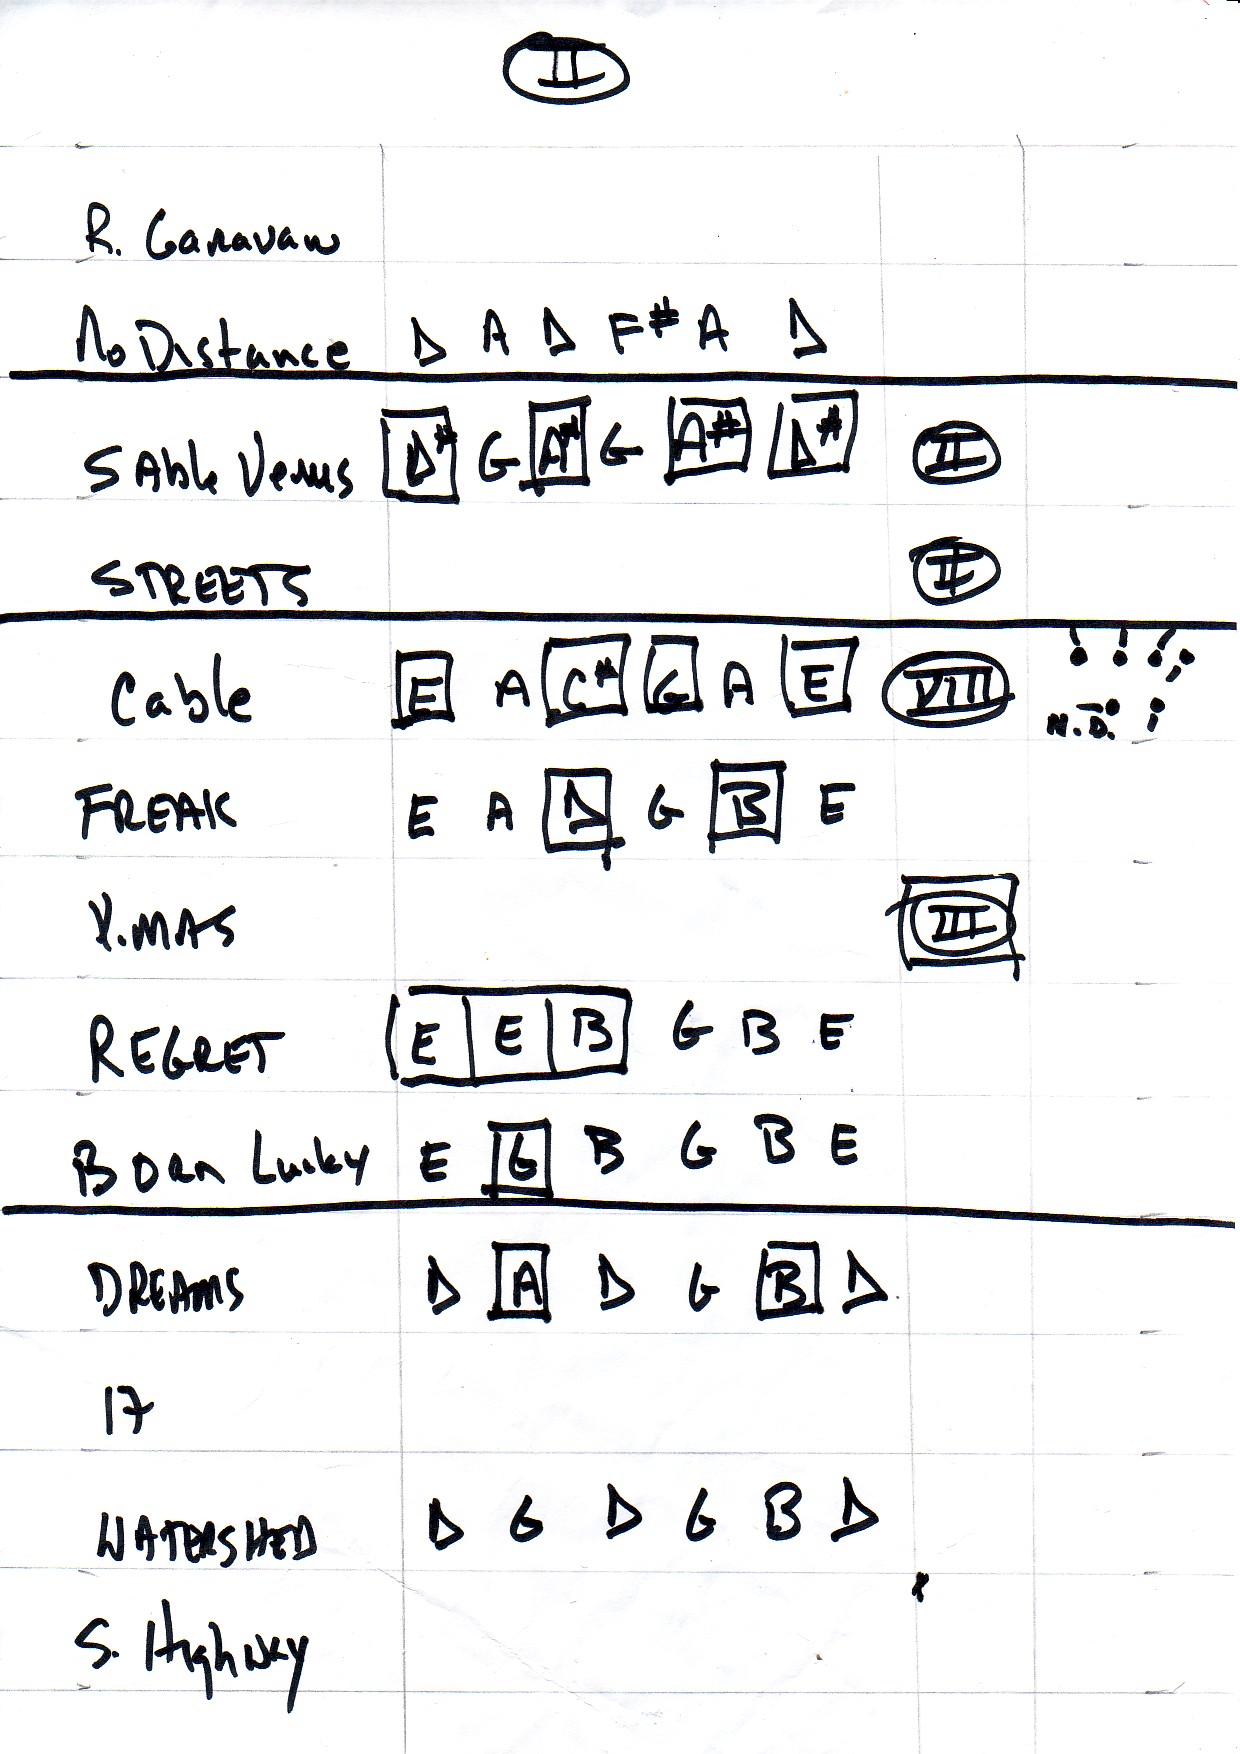 II
R. Caravan
No Distance D A D F# A D
SAble Venus D# G A# G A# D# II
STREETS II
Cable E A C# G A E VIII
N.D.
FREAK E A D G B E
X.MAS III
REGRET E E B G B E
Born Lucky E G B G B E
DREAMS D A D G B D
17
WATERSHED D G D G B D
S. Highway